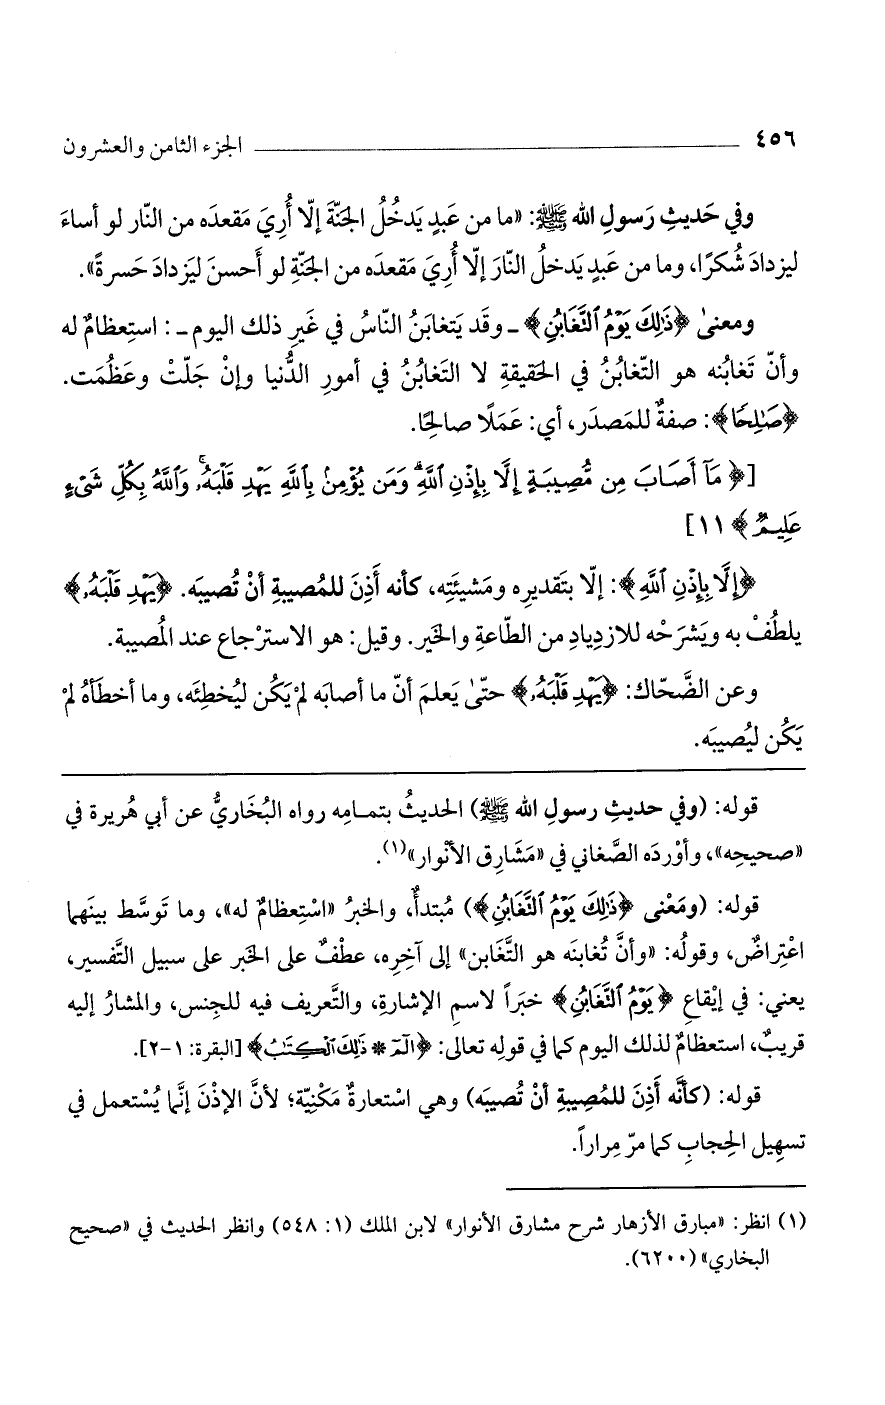 ٤٥٦ الجزء الثامن والعشرون
وفي حَديثِ رَسولِ الله ﷺ: «ما من عَبدٍ يَدخُلُ الجَنّةَ إلّا أُرِيَ مَقعدَه من النّار لو أساءَ
ليزدادَ شُكرًا، وما من عَبدٍ يَدخلُ النّارَ إلّا أُرِيَ مَقعدَه من الجَنّةِ لو أَحسنَ ليَزدادَ حَسرةً».
ومعنىٰ ﴿ذَٰلِكَ يَوْمُ ٱلتَّغَابُنِ﴾ ـ وقَد يَتغابَنُ النّاسُ في غَيرِ ذلك اليوم ـ : استِعظامٌ له
وأنّ تَغابُنه هو التّغابُنُ في الحَقيقةِ لا التَغابُنُ في أمورِ الدُّنيا وإنْ جَلّتْ وعَظُمَت.
﴿صَٰلِحًا﴾: صفةٌ للمَصدَر، أي: عَمَلًا صالِحًا.
[﴿مَآ أَصَابَ مِن مُّصِيبَةٍ إِلَّا بِإِذْنِ ٱللَّهِ ۗ وَمَن يُؤْمِنۢ بِٱللَّهِ يَهْدِ قَلْبَهُۥ ۚ وَٱللَّهُ بِكُلِّ شَىْءٍ
عَلِيمٌ﴾ ١١]
﴿إِلَّا بِإِذْنِ ٱللَّهِ﴾: إلّا بتَقديرِه ومَشيئَتِه، كأنه أَذِنَ للمُصيبةِ أنْ تُصيبَه. ﴿يَهْدِ قَلْبَهُۥ﴾
يلطُفْ به ويَشرَحْه للازديادِ من الطّاعةِ والخَير. وقيل: هو الاسترْجاع عند المُصيبة.
وعن الضَّحّاك: ﴿يَهْدِ قَلْبَهُۥ﴾ حتّىٰ يَعلمَ أنّ ما أصابَه لمْ يَكُن ليُخطِئَه، وما أخطَأهُ لمْ
يَكُن ليُصيبَه.
قوله: (وفي حديثِ رسولِ الله ﷺ) الحديثُ بتمـامِه رواه البُخَاريُّ عن أبي هُريرة في
«صحيحِه»، وأوْردَه الصَّغاني في «مَشَارِق الأنْوار»(١).
قوله: (ومَعْنى ﴿ذَٰلِكَ يَوْمُ ٱلتَّغَابُنِ﴾) مُبتدأٌ، والخبرُ «اسْتِعظامٌ له»، وما تَوسَّط بينَهما
اعْتِراضٌ، وقولُه: «وأنَّ تُغابنَه هو التَّغابن» إلى آخِرِه، عطْفٌ على الخَبر على سبيل التَّفسير،
يعني: في إيْقاعِ ﴿يَوْمُ ٱلتَّغَابُنِ﴾ خبَراً لاسمِ الإشارةِ، والتَّعريف فيه للجِنس، والمشارُ إليه
قريبٌ، استعظامٌ لذلك اليوم كما في قولِه تعالى: ﴿الٓمٓ * ذَٰلِكَ ٱلْكِتَٰبُ﴾ [البقرة: ١-٢].
قوله: (كأنَّه أَذِنَ للمُصِيبةِ أنْ تُصيبَه) وهي اسْتعارةٌ مَكْنِيّة؛ لأنَّ الإذْنَ إنَّما يُسْتعمل في
تسهِيل الحِجابِ كما مرّ مِراراً.
(١) انظر: «مبارق الأزهار شرح مشارق الأنوار» لابن الملك (١: ٥٤٨) وانظر الحديث في «صحيح
البخاري» (٦٢٠٠).